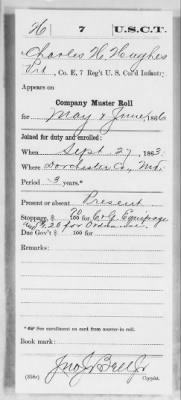 H | 7 | U.S.C.T.
Charles H. Hughes
Pvt, Co. E, 7 Reg't U. S. Col'd Infantry
Appears on
Company Muster Roll
for May & June, 1866
Joined for duty and enrolled:
When Sept. 27, 1863.
Where Dorchester Co, Md.
Period 3 years.*
Present or absent Present
Stoppage, $ 100 for C & G Equipage
Due Gov't $ 100 for
Remarks:
*See enrollment on card from muster-in roll.
Book mark:
Jno. J. Ball Jr
(358c) Copyist.